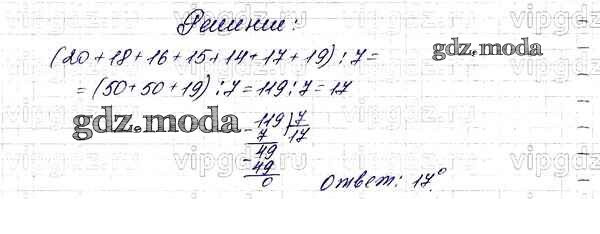 Решение:
(20+18+16+15+14+17+19):7=
=(50+50+19):7=119:7=17
119 7
7 17
49
49
0
Ответ: 17°
gdz.moda
gdz.moda
vipgdz.ru